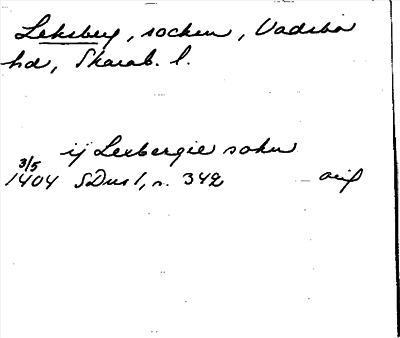 Leksberg, socken, Vadsbo
hd, Skarab. l.
ij Lexbergie sokn
3/5
1404 SDns 1, s. 342 orig